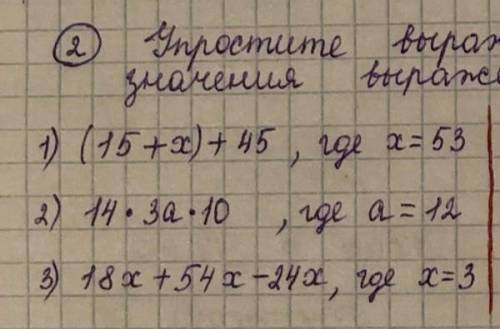 2 Упростите выраж
значения выраже
1) (15+x)+45, где x=53
2) 14·3a·10, где a=12
3) 18x+54x-24x, где x=3